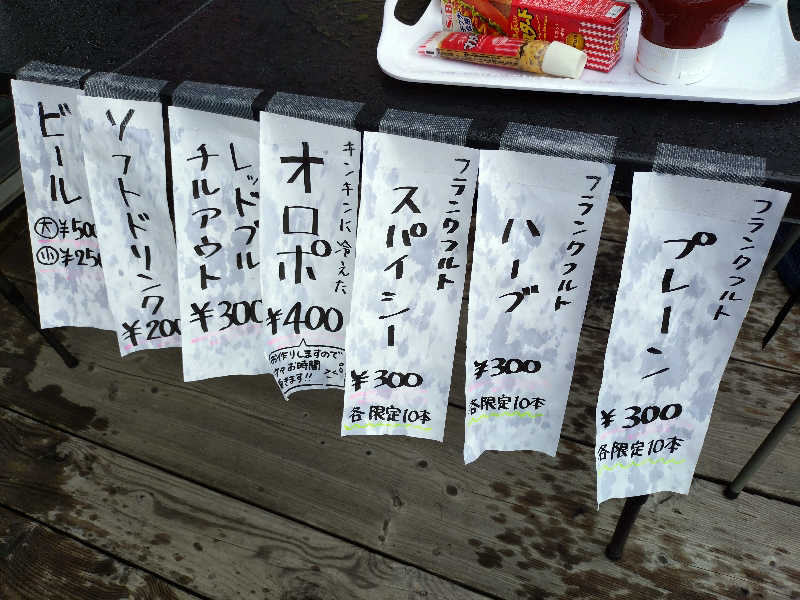 ビール
大 ¥500
小 ¥250
ソフトドリンク
¥200
レッドブル
チルアウト
¥300
キンキンに冷えた
オロポ
¥400
お作りしますので
お時間
フランクフルト
スパイシー
¥300
各限定10本
フランクフルト
ハーブ
¥300
各限定10本
フランクフルト
プレーン
¥300
各限定10本
S&B